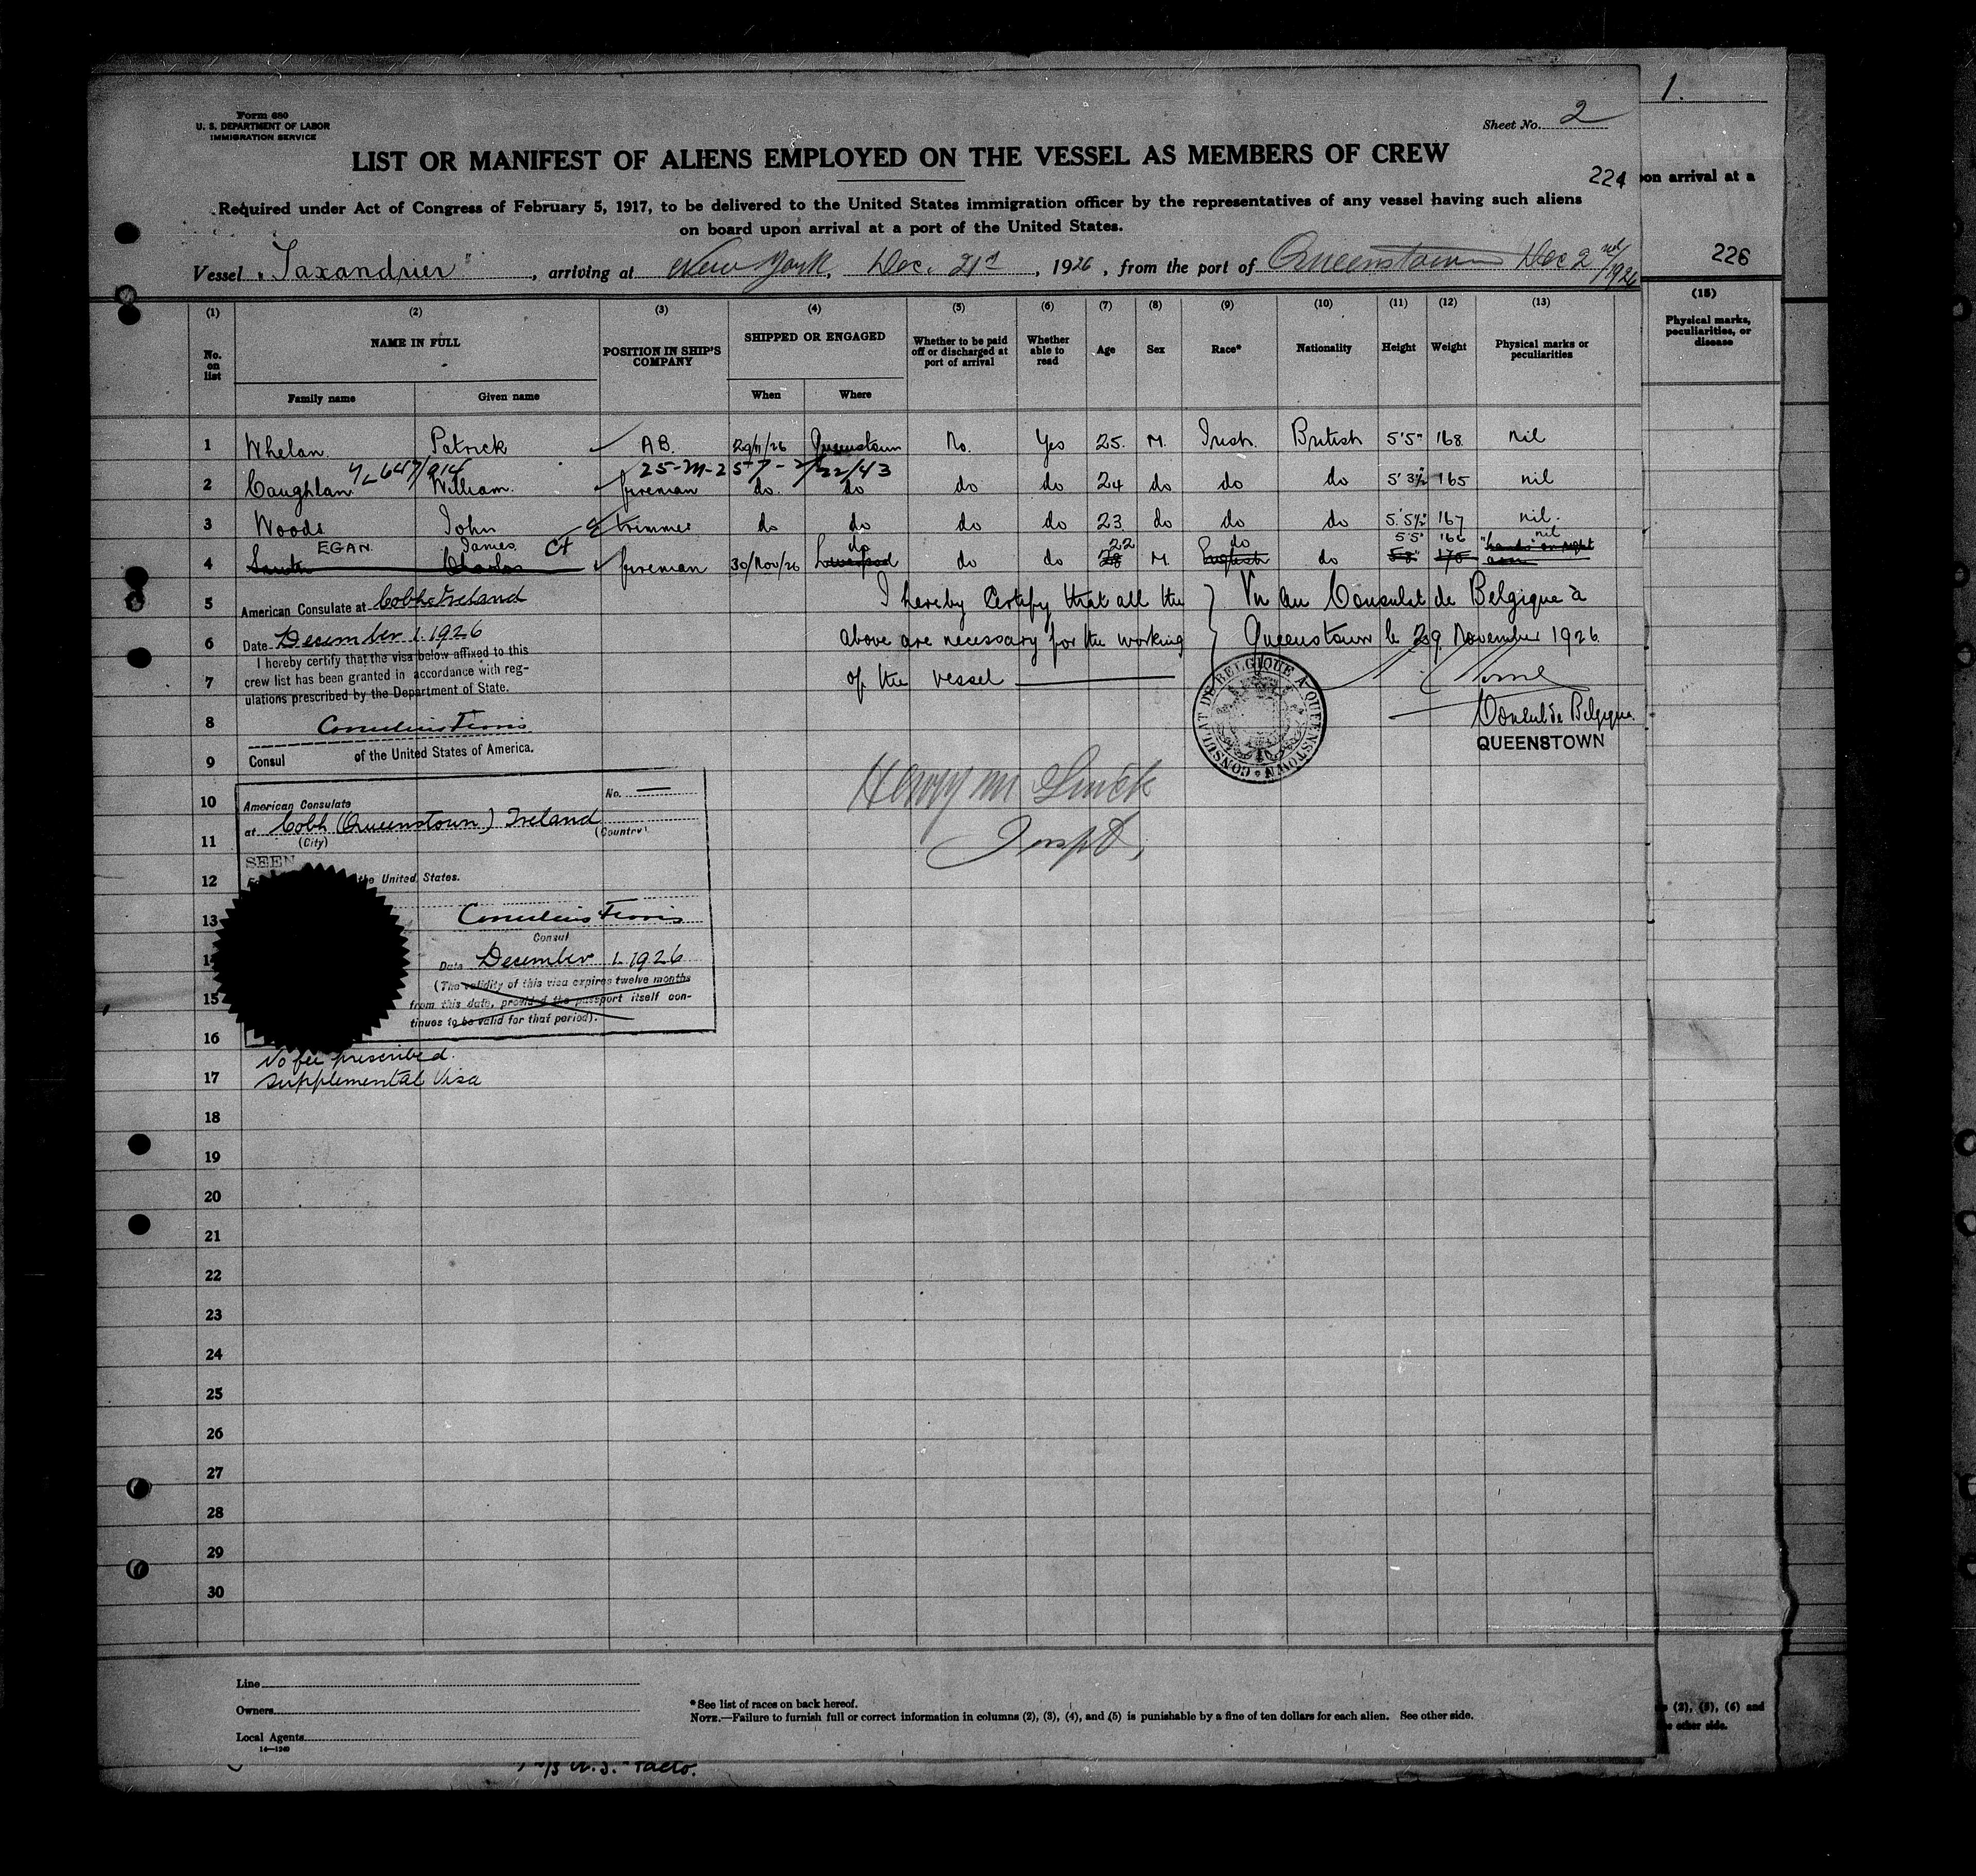 1.
Form 680
U. S. DEPARTMENT OF LABOR
IMMIGRATION SERVICE
Sheet No. 2
LIST OR MANIFEST OF ALIENS EMPLOYED ON THE VESSEL AS MEMBERS OF CREW
224 pon arrival at a
Required under Act of Congress of February 5, 1917, to be delivered to the United States immigration officer by the representatives of any vessel having such aliens
on board upon arrival at a port of the United States.
226
Vessel "Taxandrier", arriving at New York, Dec. 21st, 1926, from the port of Queenstown Dec 2nd/1926
(1) (2) (3) (4) (5) (6) (7) (8) (9) (10) (11) (12) (13) (15)
No. on list NAME IN FULL POSITION IN SHIP'S COMPANY SHIPPED OR ENGAGED Whether to be paid off or discharged at port of arrival Whether able to read Age Sex Race* Nationality Height Weight Physical marks or peculiarities Physical marks, peculiarities, or disease
Family name Given name When Where
1 Whelan Patrick AB. 29/11/26 Queenstown No. Yes 25. M. Irish. British 5'5" 168 nil
25-M-257-2/22/43
2 Coughlan William. fireman do. do do do 24 do do do 5'3½" 165 nil
3 Woods John trimmer do do do do 23 do do do 5.5½" 167 nil.
EGAN. James. do 22 do 5'5" 166 nil
4 Charles fireman 30/Nov/26 Liverpool do do 28 M. English do 5'8" 170 on right arm
5 American Consulate at Cobh Ireland I hereby Certify that all the Vu au Consulat de Belgique à
6 Date December 1. 1926 above are necessary for the working Queenstown le 29 November 1926
I hereby certify that the visa below affixed to this
7 crew list has been granted in accordance with reg- of the vessel
ulations prescribed by the Department of State.
CONSULAT DE BELGIQUE A QUEENSTOWN
8 Consul de Belgique
QUEENSTOWN
9 Consul of the United States of America.
10 American Consulate No.
at Cobh (Queenstown) Ireland
11 (City) (Country)
SEEN
12 the United States.
13
Consul
14 Date December 1. 1926
(The validity of this visa expires twelve months
15 from this date, provided the passport itself con-
tinues to be valid for that period).
16
No fee prescribed.
17 supplemental Visa
18
19
20
21
22
23
24
25
26
27
28
29
30
Line
Owners
Local Agents
14—1240
*See list of races on back hereof.
NOTE.—Failure to furnish full or correct information in columns (2), (3), (4), and (5) is punishable by a fine of ten dollars for each alien. See other side.
(2), (5), (6) and
other side.